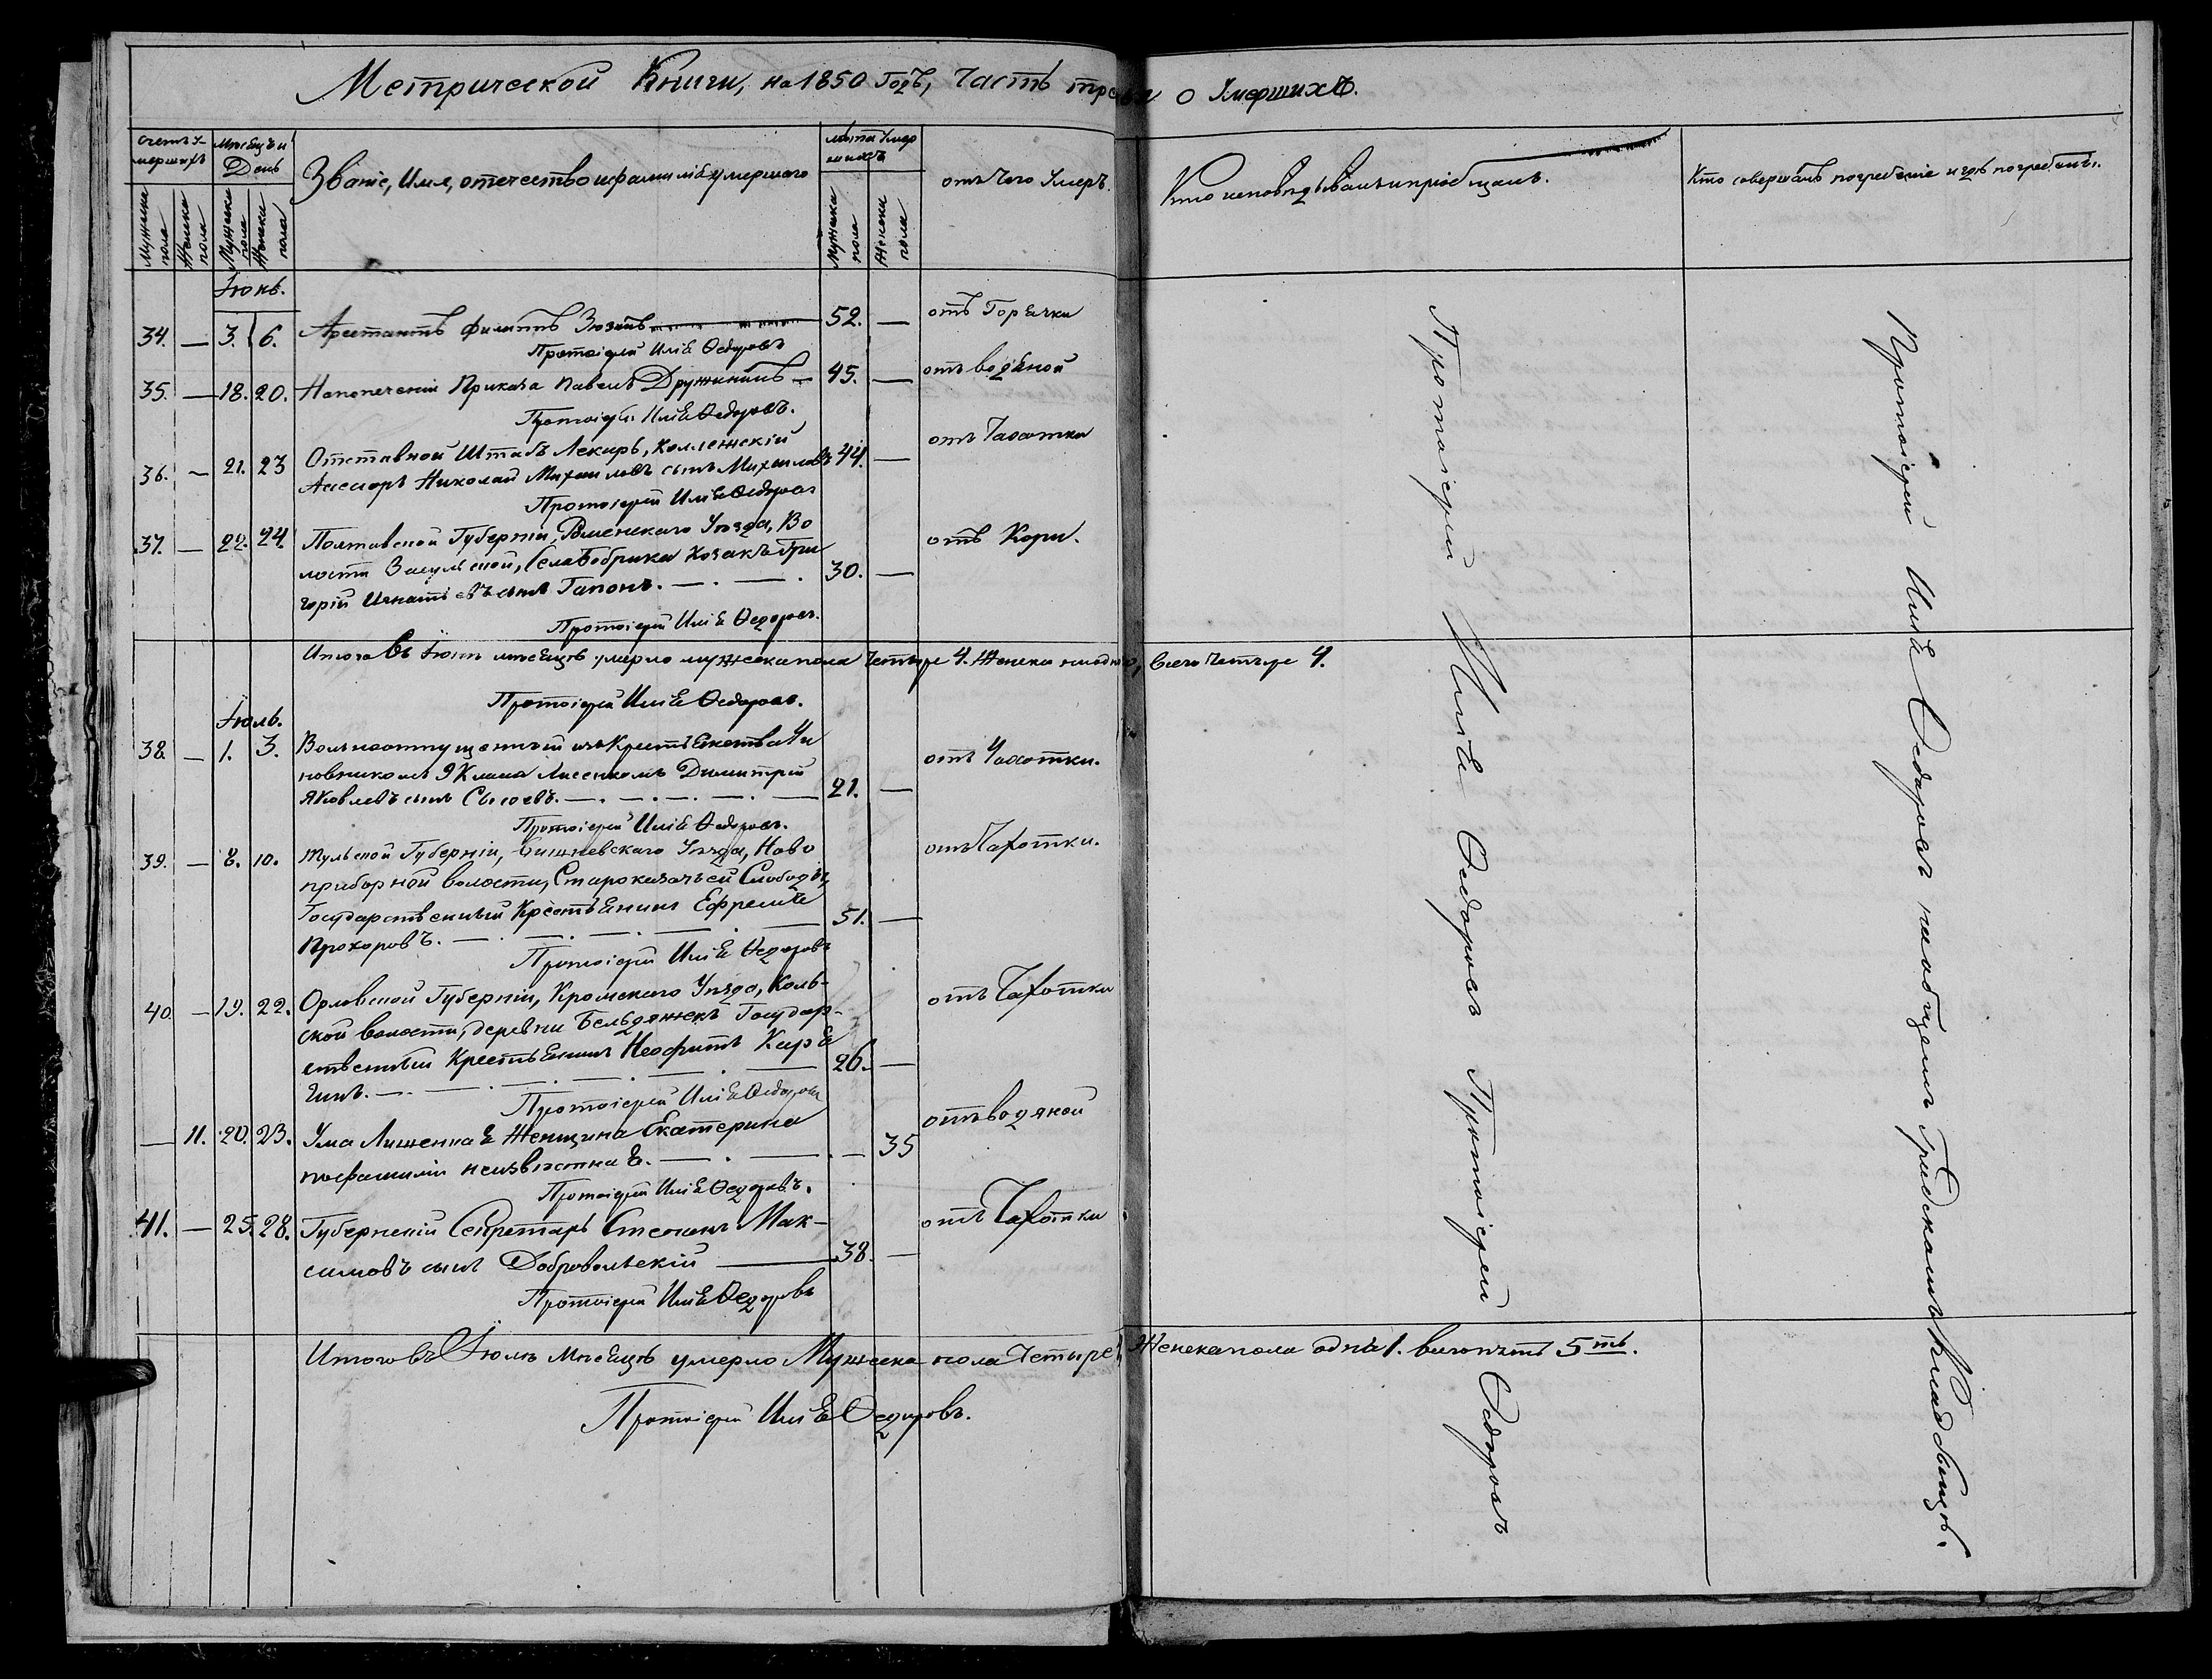 Метрической Книги, на 1850 Годъ, Часть третья о Умершихъ.
счетъ У-
мершихъ
Мѣсяцъ и
День
Званіе, Имя, отечество и фамилія умершаго
лѣта Умер
шихъ
отъ Чего Умеръ.
Кто исповѣдывалъ и пріобщалъ.
Кто совершалъ погребеніе и гдѣ погребенъ.
Мужеска пола
Женска пола
Мужеска пола
Женска пола
Мужеска пола
Женска пола
Іюнь.
34. — 3. 6. Арестантъ Филиппъ Зюзинъ 52. — отъ Горячки
Протоіерей Илія Ѳедоровъ
35. — 18. 20. На попеченіи Приказа Павелъ Дружининъ — 45. — отъ водяной
Протоіерей Илія Ѳедоровъ.
36. — 21. 23 Отставной Штабъ Лекарь, Коллежскій отъ Чахотки
Ассесоръ Николай Михаиловъ сынъ Михаиловъ 44. —
Протоіерей Илія Ѳедоровъ
37. — 22. 24. Полтавской Губерніи, Роменскаго Уѣзда, Во отъ Кори.
лости Засульской, Села Бобрика Козакъ Гри 30. —
горій Игнатіевъ сынъ Гапонъ. —
Протоіерей Илія Ѳедоровъ.
Итого въ Іюнѣ мѣсяцѣ умерло мужеска пола Четыре 4. Женска ниодного, всего Четыре 4.
Протоіерей Илія Ѳедоровъ.
Іюль.
38. — 1. 3. Вольноотпущенный изъ Крестьянства Чи отъ Чахотки.
новникомъ 9 Класса Лисенкомъ Димитрій
Яковлевъ сынъ Сысоевъ. — 21. —
Протоіерей Илія Ѳедоровъ.
39. — 8. 10. Тульской Губерніи, Уѣзда, Ново отъ Чахотки.
приборной волости, Староказачьей Слободы,
Государственный Крестьянинъ Ефремъ 51. —
Прохоровъ. —
Протоіерей Илія Ѳедоровъ
40. — 19. 22. Орловской Губерніи, Кромскаго Уѣзда, отъ Чахотки
ской волости, деревни Бельдяжекъ Государ-
ственный Крестьянинъ Неофитъ Каря 26. —
гинъ. —
Протоіерей Илія Ѳедоровъ
— 11. 20. 23. Ума Лишенная Женщина Екатерина отъ водяной
по фамиліи неизвѣстная. — — 35
Протоіерей Илія Ѳедоровъ.
41. — 25. 28. Губернскій Секретарь Степанъ Мак- отъ Чахотки
симовъ сынъ Добровольскій — 38. —
Протоіерей Илія Ѳедоровъ
Итого въ Іюлѣ Мѣсяцѣ умерло Мужеска пола Четыре, Женска пола одна 1. всего пять 5ть.
Протоіерей Илія Ѳедоровъ.
Протоіерей Илія Ѳедоровъ Протоіерей Ѳедоровъ
Протоіерей Илія Ѳедоровъ на общемъ Градскомъ Кладбищѣ.